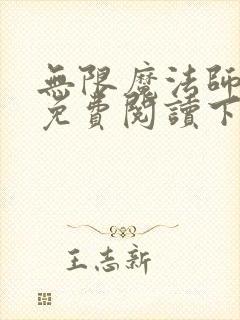 無限魔法師
免費閱讀下
王志新